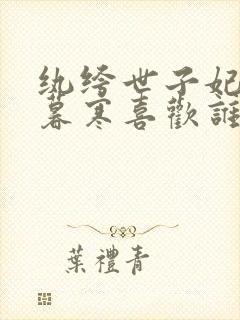 纨绔世子妃
暮寒喜歡誰
葉禮青